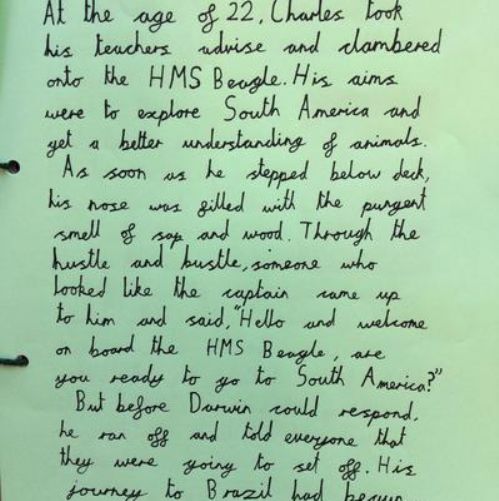 At the age of 22, Charles took
his teachers advise and clambered
onto the HMS Beagle. His aims
were to explore South America and
get a better understanding of animals.
As soon as he stepped below deck,
his nose was filled with the pungent
smell of sap and wood. Through the
hustle and bustle, someone who
looked like the captain came up
to him and said, "Hello and welcome
on board the HMS Beagle, are
you ready to go to South America?"
But before Darwin could respond,
he ran off and told everyone that
they were going to set off. His
journey to Brazil had begun